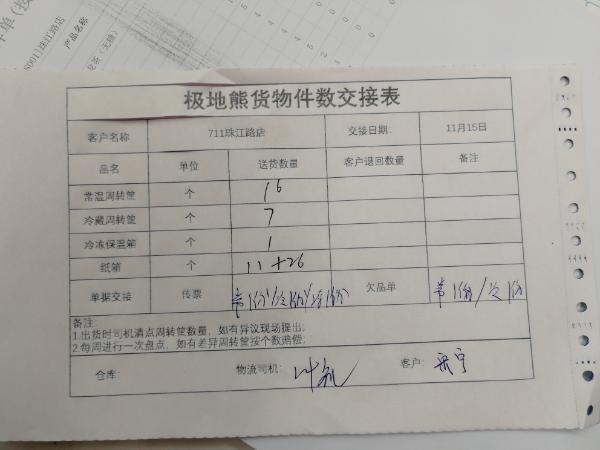 极地熊货物件数交接表
客户名称 711珠江路店 交接日期: 11月15日
品名 单位 送货数量 客户退回数量 备注
常温周转筐 个 16
冷藏周转筐 个 7
冷冻保温箱 个 1
纸箱 个 11+26
单据交接 传票 欠品单
备注
1.出货时司机清点周转筐数量,如有异议现场提出;
2.每周进行一次盘点,如有差异周转筐按个数赔偿;
仓库: 物流司机: 客户:
产品名称